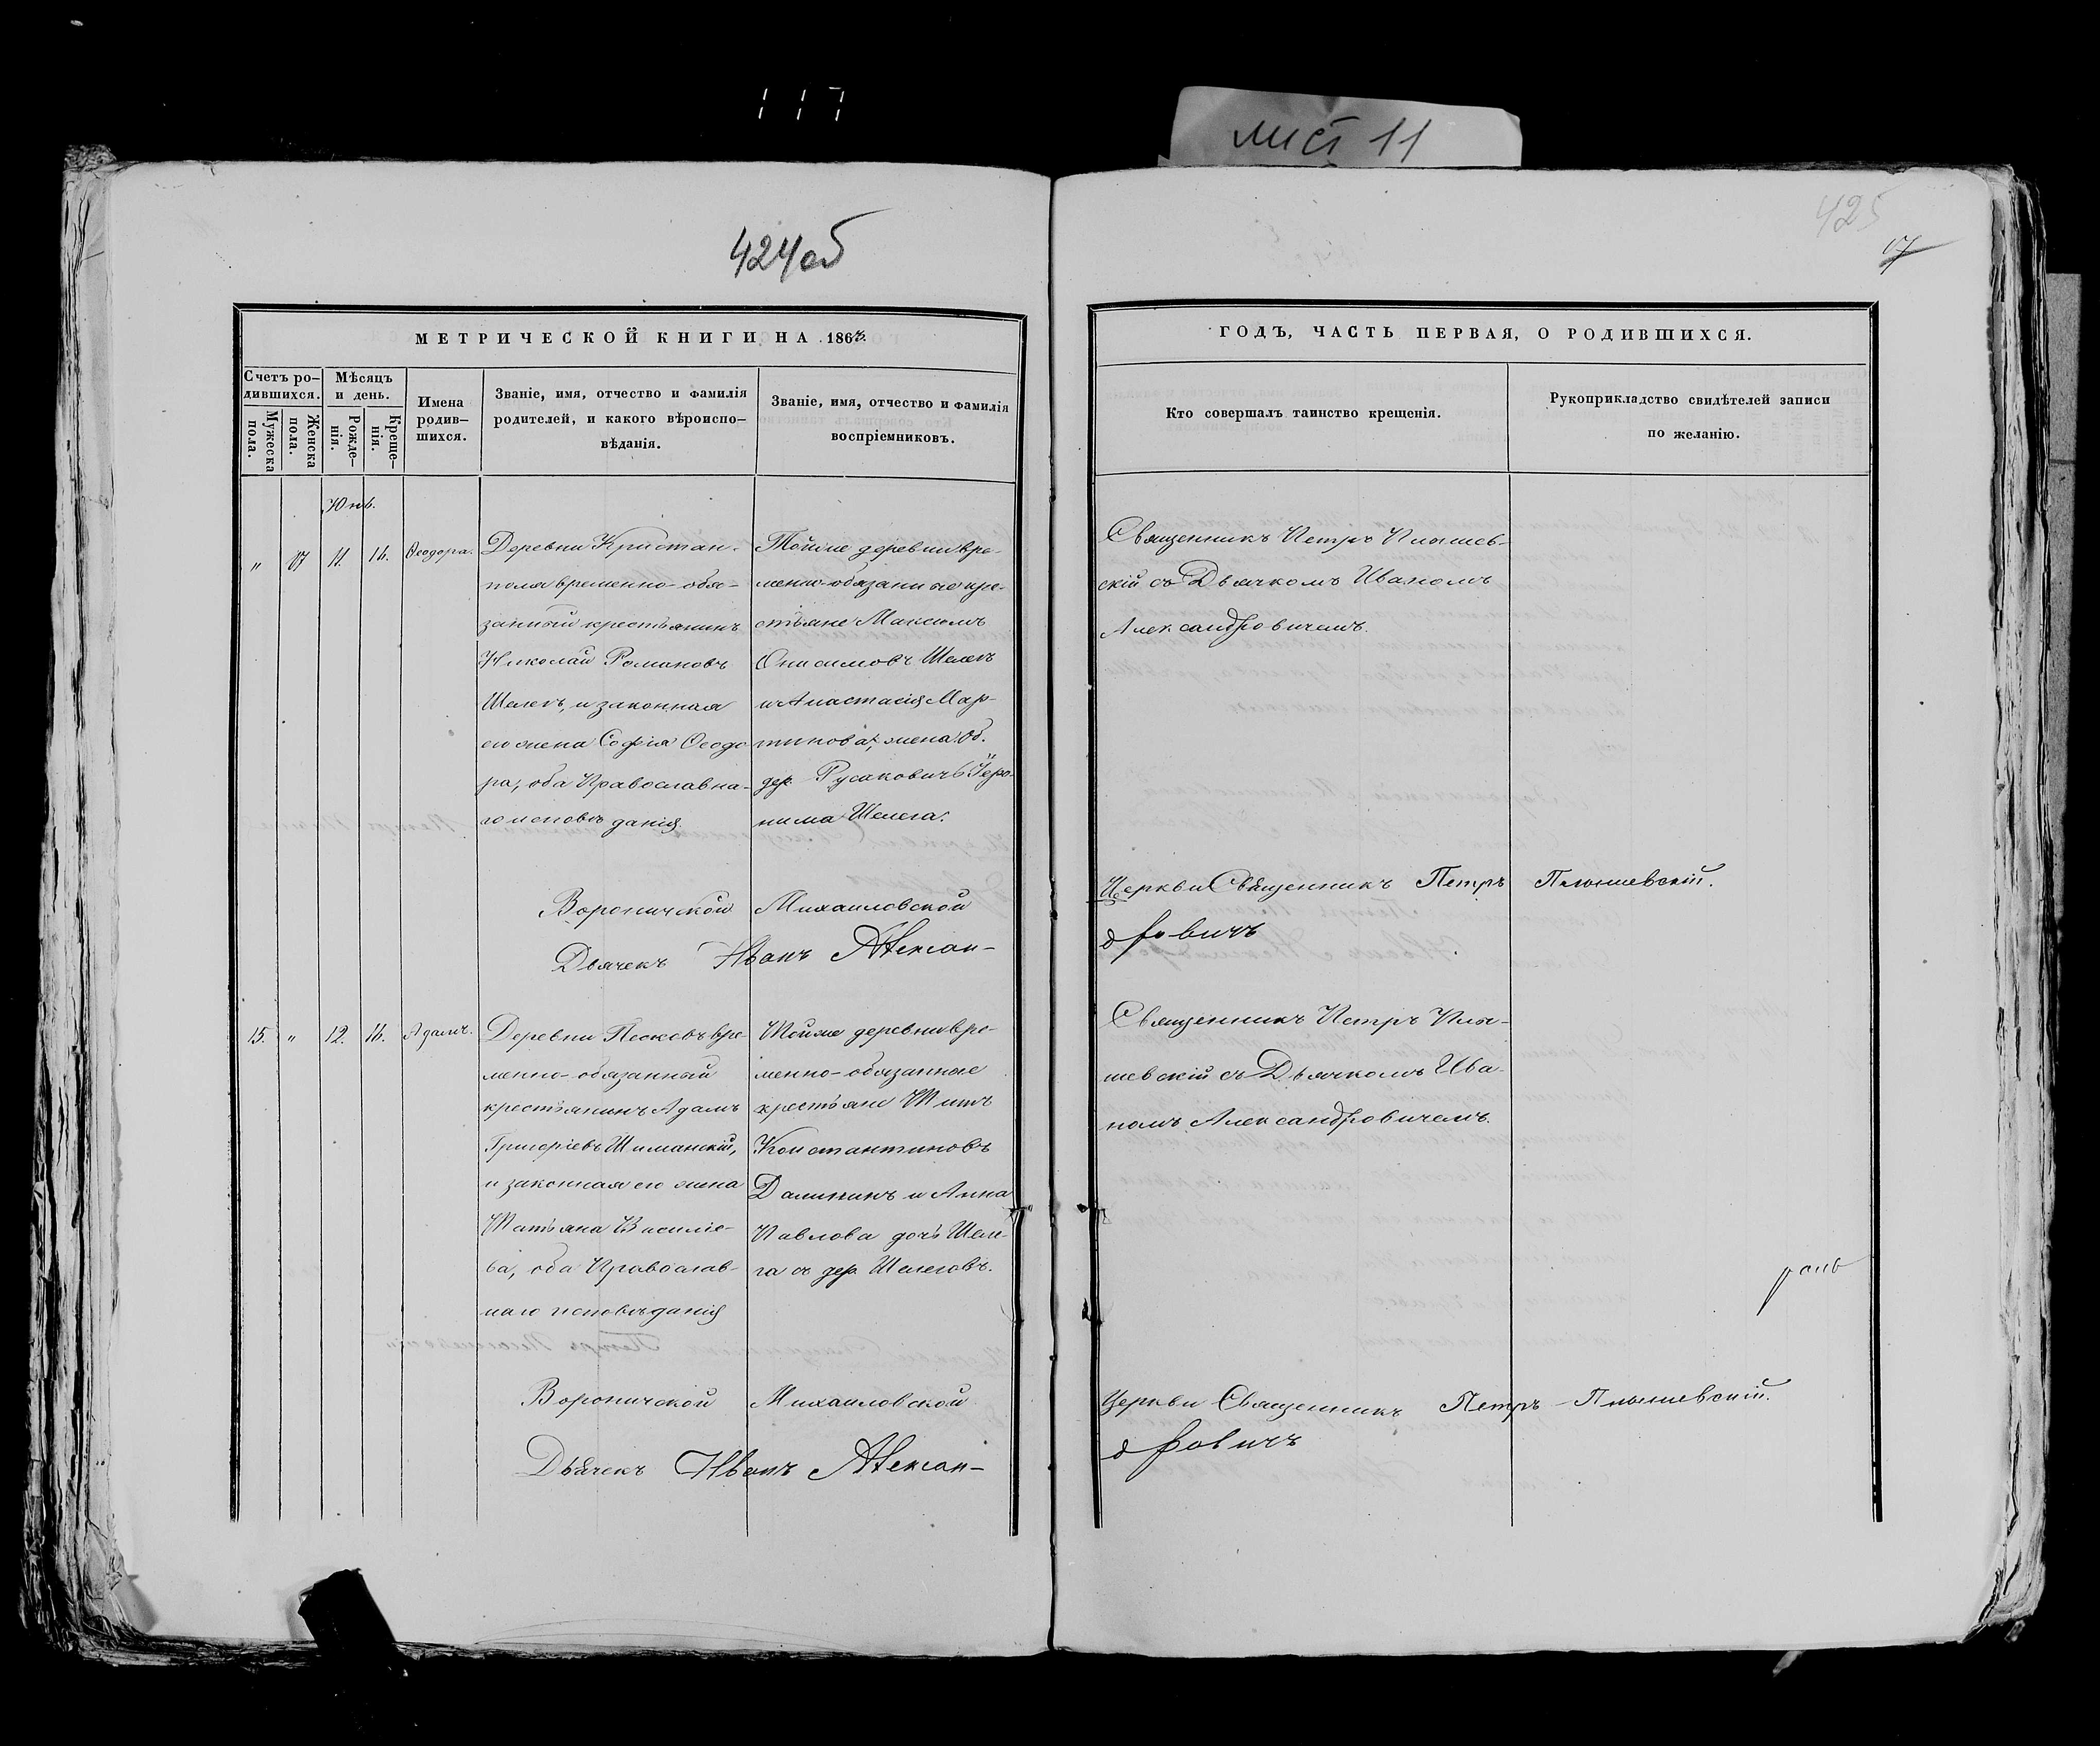 117
лист 11
424об
425
17
МЕТРИЧЕСКОЙ КНИГИ НА 1863.
ГОДЪ, ЧАСТЬ ПЕРВАЯ, О РОДИВШИХСЯ.
Счетъ ро-
дившихся.
Мужеска
пола.
Женска
пола.
Мѣсяцъ
и день.
Рожде-
нія.
Креще-
нія.
Имена
родив-
шихся.
Званіе, имя, отчество и фамилія
родителей, и какого вѣроиспо-
вѣданія.
Званіе, имя, отчество и фамилія
воспріемниковъ.
Кто совершалъ таинство крещенія.
Рукоприкладство свидѣтелей записи
по желанію.
Юнь.
" 17 11. 16. Ѳеодора.
Деревни Кристан-
поля временно-обя-
занный крестьянинъ
Николай Романовъ
Шелегъ, и законная
его жена Софія Ѳеодо
ра, оба Православна-
го исповѣданія
Тойже деревни вре-
менно-обязанные кре-
стьяне Максимъ
Онисимовъ Шелегъ
и Анастасія Мар-
тинова, жена об.
дер. Русаковичъ Іеро-
нима Шелега.
Священникъ Петръ Плышев-
скій съ Дьячкомъ Иваномъ
Александровичемъ.
Вороничской Михаиловской Церкви Священникъ Петръ Плышевскій.
Дьячекъ Иванъ Алексан-
дровичъ
15. " 12. 16. Адамъ.
Деревни Песковъ вре-
менно-обязанный
крестьянинъ Адамъ
Григоріевъ Шиманскій,
и законная его жена
Татьяна Василіе-
ва, оба Православ-
наго исповѣданія
Тойже деревни вре-
менно-обязанные
крестьяне Титъ
Константиновъ
Далининъ и Анна
Павлова дочь Шеле-
га съ дер. Шелеговъ.
Священникъ Петръ Плы-
шевскій съ Дьячкомъ Ива-
номъ Александровичемъ.
Вороничской Михаиловской Церкви Священникъ Петръ Плышевскій.
Дьячекъ Иванъ Алексан-
дровичъ